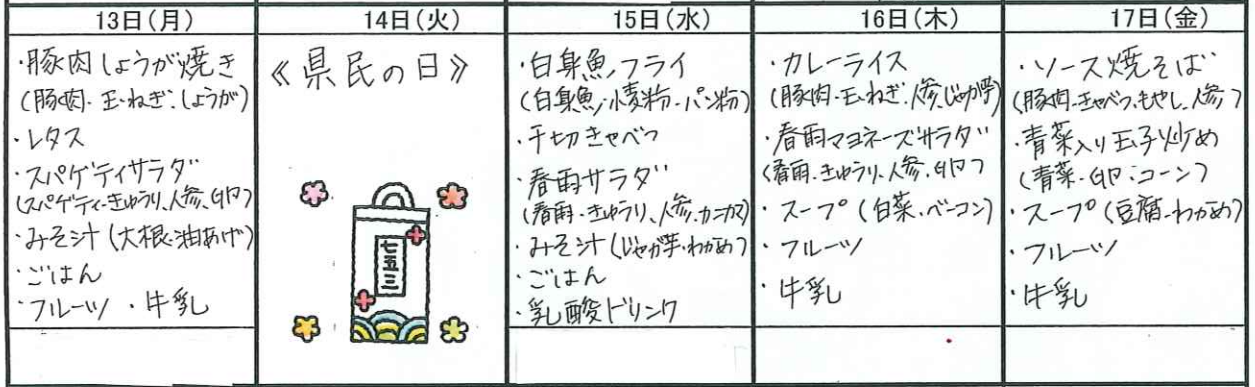 13日(月)
・豚肉しょうが焼き
(豚肉・玉ねぎ・しょうが)
・レタス
・スパゲティサラダ
(スパゲティ・きゅうり、人参、卵)
・みそ汁(大根・油あげ)
・ごはん
・フルーツ ・牛乳
14日(火)
《県民の日》
七五三
15日(水)
・白身魚フライ
(白身魚・小麦粉・パン粉)
・千切きゃべつ
・春雨サラダ
(春雨・きゅうり、人参、カニカマ)
・みそ汁(じゃが芋・わかめ)
・ごはん
・乳酸ドリンク
16日(木)
・カレーライス
(豚肉・玉ねぎ・人参・じゃが芋)
・春雨マヨネーズサラダ
(春雨・きゅうり、人参・卵)
・スープ(白菜・ベーコン)
・フルーツ
・牛乳
17日(金)
・ソース焼そば
(豚肉・きゃべつ・もやし、人参)
・青菜入り玉子炒め
(青菜・卵・コーン)
・スープ(豆腐・わかめ)
・フルーツ
・牛乳